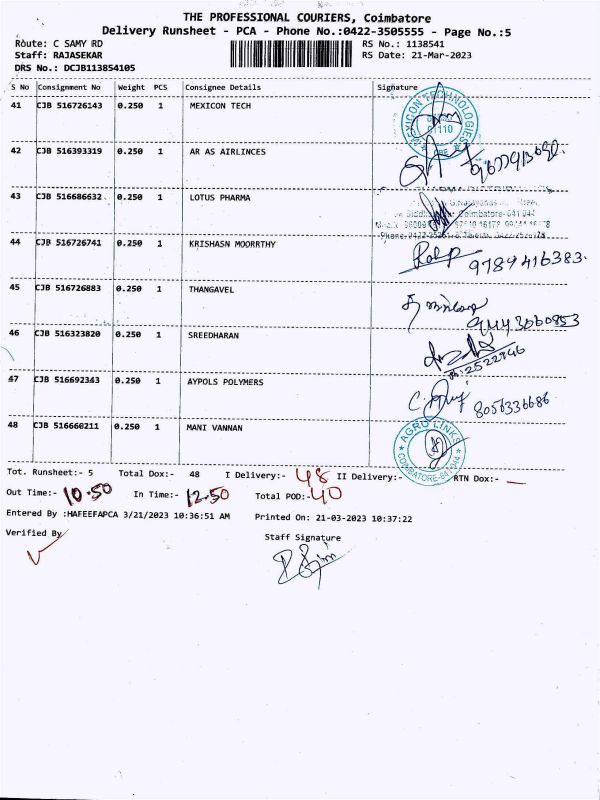 THE PROFESSIONAL COURIERS, Coimbatore
Delivery Runsheet - PCA - Phone No.:0422-3505555 - Page No.:5
Route: C SAMY RD
RS No.: 1138541
Staff: RAJASEKAR
RS Date: 21-Mar-2023
DRS No.: DCJB113854105
S No Consignment No Weight PCS Consignee Details Signature
41 CJB 516726143 0.250 1 MEXICON TECH
MEXICON TECHNOLOGIES
42 CJB 516393319 0.250 1 AR AS AIRLINCES
43 CJB 516686632 0.250 1 LOTUS PHARMA
Coimbatore-641 044
44 CJB 516726741 0.250 1 KRISHASN MOORRTHY
9789416383.
45 CJB 516726883 0.250 1 THANGAVEL
46 CJB 516323820 0.250 1 SREEDHARAN
47 CJB 516692343 0.250 1 AYPOLS POLYMERS
8056336686
48 CJB 516660211 0.250 1 MANI VANNAN
AGRO LINKS
COIMBATORE-641 044
Tot. Runsheet:- 5 Total Dox:- 48 I Delivery:- 48 II Delivery:- RTN Dox:- —
Out Time:- 10.50 In Time:- 12.50 Total POD:- 40
Entered By :HAFEEFAPCA 3/21/2023 10:36:51 AM Printed On: 21-03-2023 10:37:22
Verified By
Staff Signature